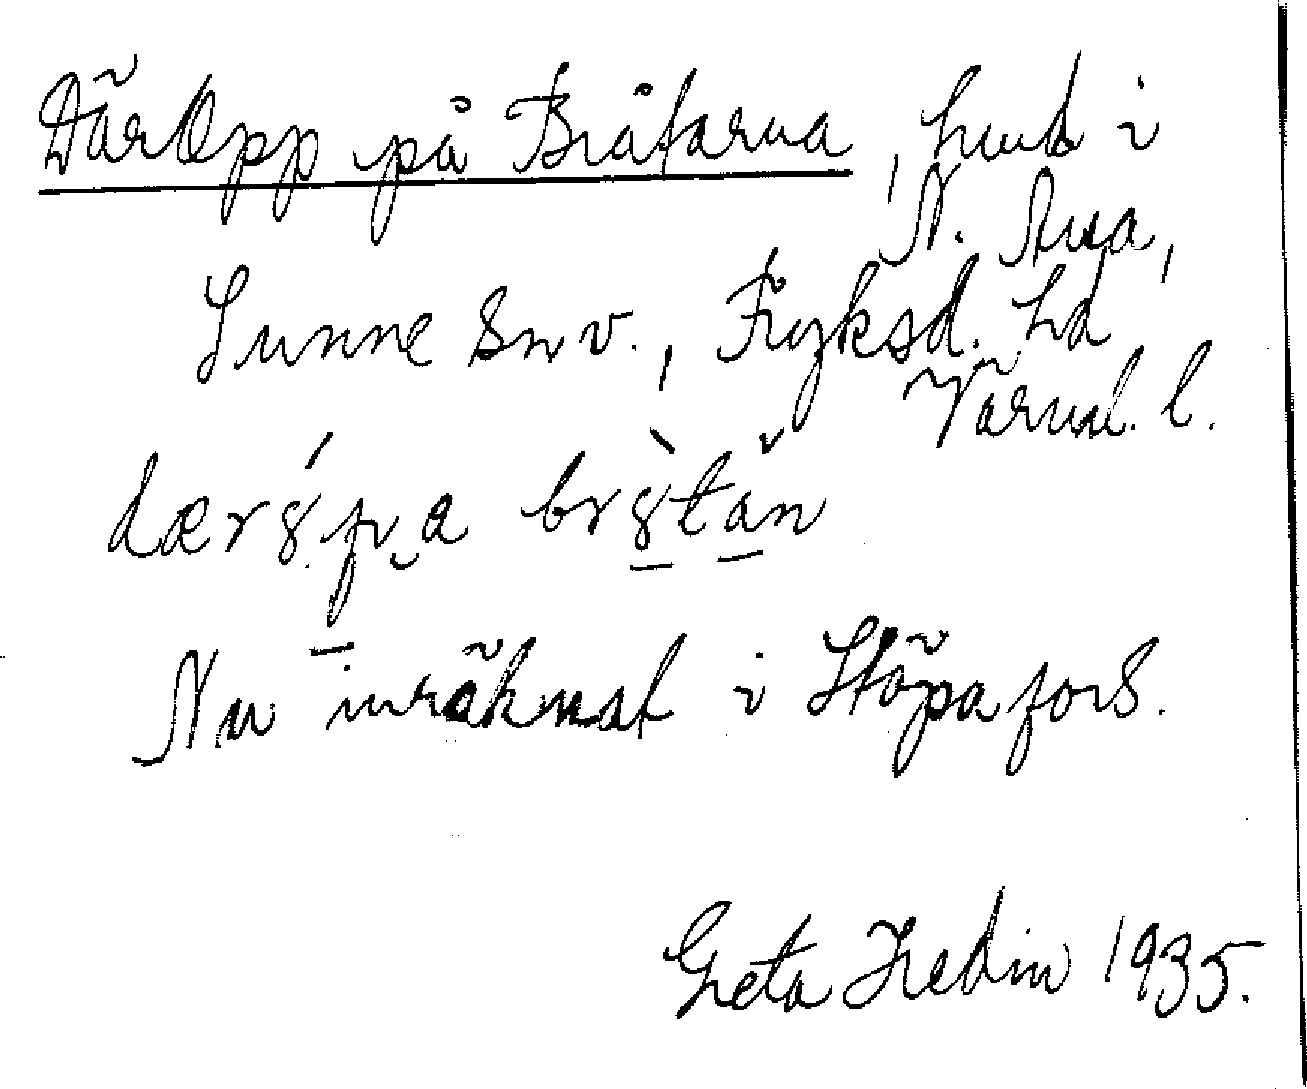 Däröpp på Bråtarna, hmd i
N. Ausa,
Sunne snv., Fryksd. hd
Värml. l.
Nu inräknat i Stöpafors.
Greta Hedin 1935.